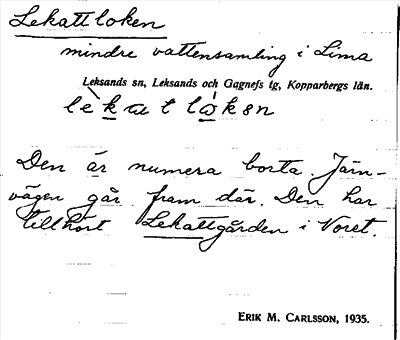 Lekattloken
mindre vattensamling i Lima
Leksands sn, Leksands och Gagnefs tg, Kopparbergs län.
lèkat lòkən
Den är numera borta. Järn-
vägen går fram där. Den har
tillhört Lekattgården i Noret.
ERIK M. CARLSSON, 1935.